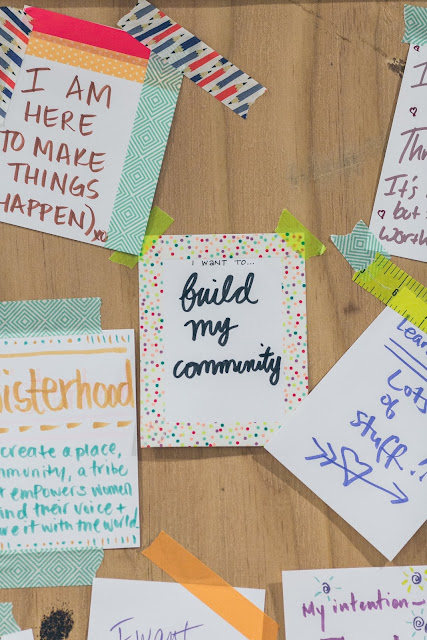 I AM
HERE
TO MAKE
THINGS
HAPPEN)
xo
I
Thr
It's
but
worth
I WANT TO...
build
my
community
isterhood
create a place,
mmunity, a tribe
t empowers women
ind their voice +
are it with the world
Lear
Lots
of
stuff!
I want
My intention-